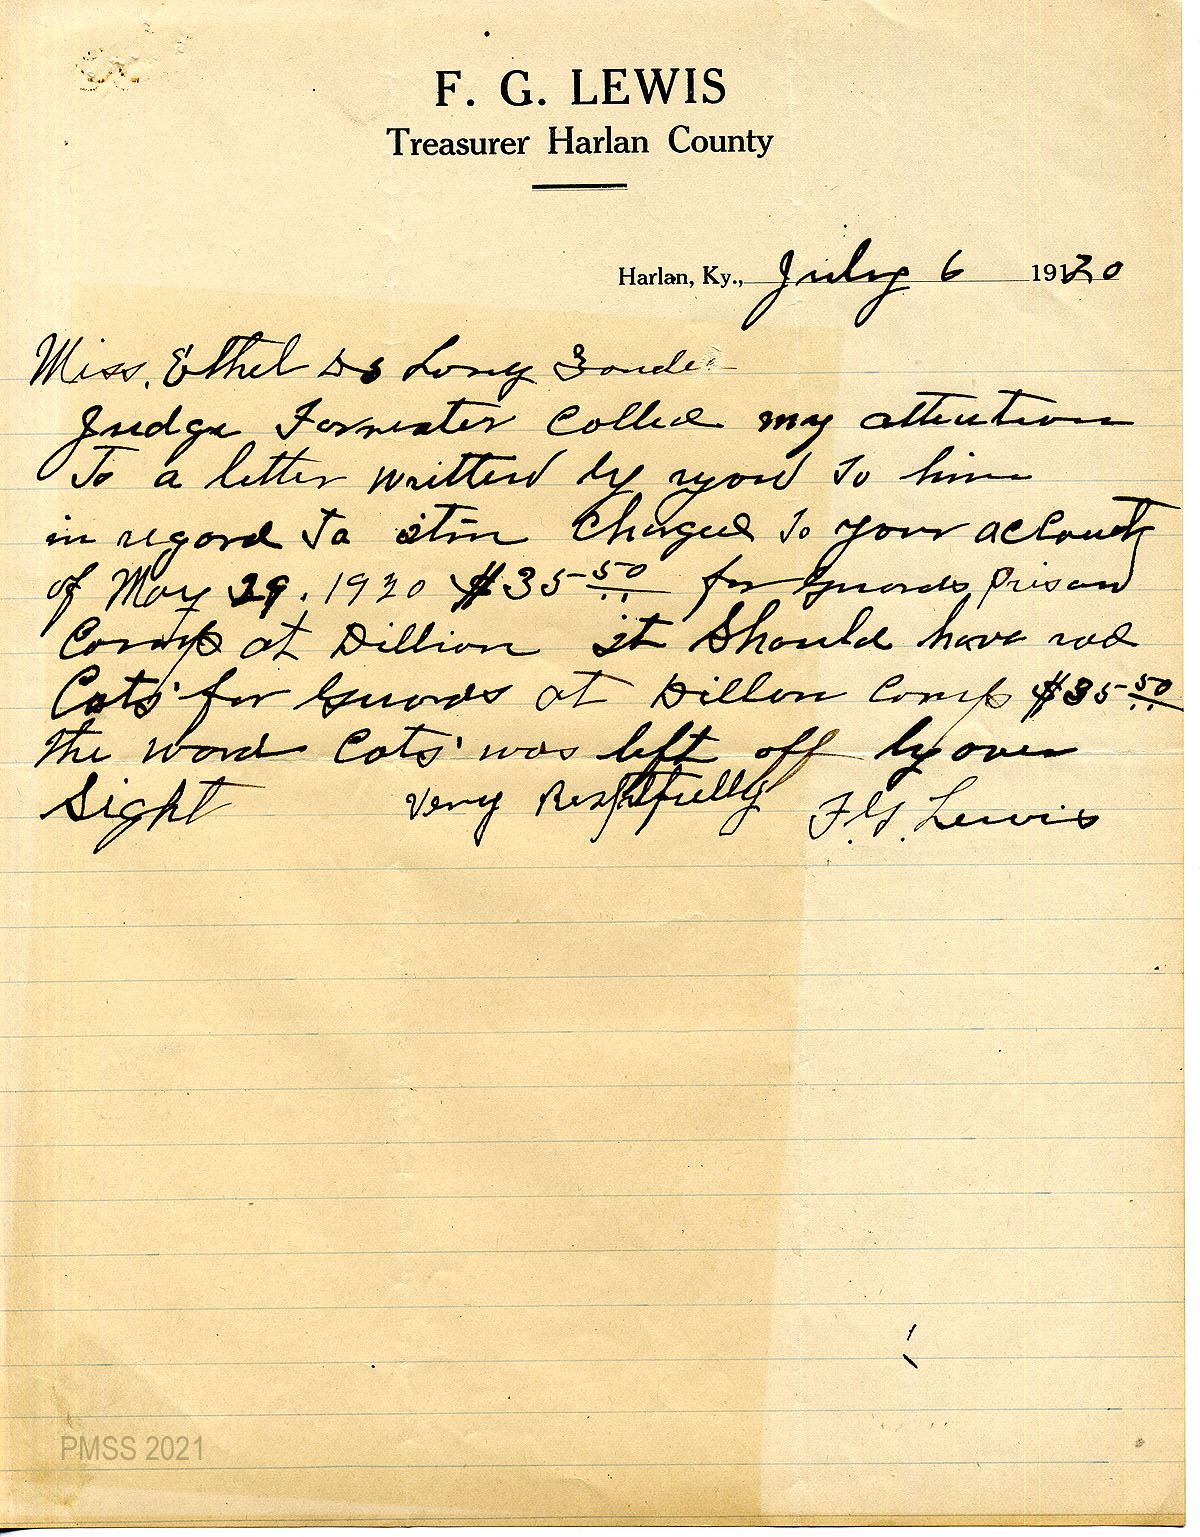 F. G. LEWIS
Treasurer Harlan County
Harlan, Ky., July 6 1920
Miss. Ethel De Long Zande
Judge Forrester Called my attention
To a letter written by you To him
in regard To itim Charged To your account
of May 29. 1920 $35 50 for Guards Prison
Camp at Dillion it Should have rad
Cots' for Guards at Dillon Camp $35 50
The word Cots' was left off by over
Sight Very Respfulfully F. G. Lewis
PMSS 2021